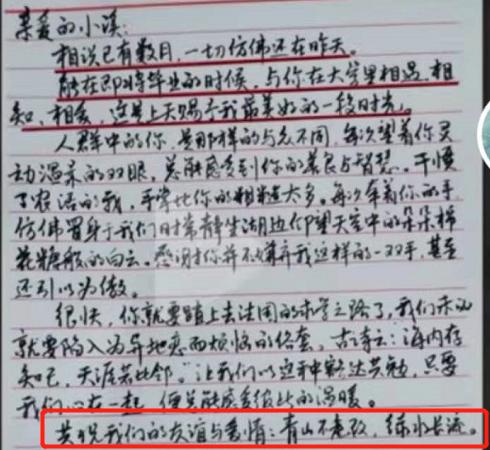 亲爱的小溪:
相识已有数月,一切仿佛还在昨天。
能在即将毕业的时候,与你在大学里相遇,相
知,相爱,这是上天赐予我最美好的一段时光。
人群中的你,是那样的与众不同,每次望着你灵
动温柔的双眼,总能感受到你的善良与智慧。干惯
了农活的我,手掌比你的粗糙太多。每次拿着你的手,
仿佛置身于我们时常静坐湖边仰望天空中的朵朵棉
花糖般的白云。感谢你并不嫌弃我这样的一双手,甚至
还引以为傲。
很快,你就要踏上去法国的求学之路了,我们未必
就要陷入为异地恋而烦恼的俗套。古诗云:海内存
知己,天涯若比邻。让我们以这种豁达共勉,只要
我们心在一起,便总能感受彼此的温暖。
共祝我们的友谊与爱情:青山不老,绿水长流。